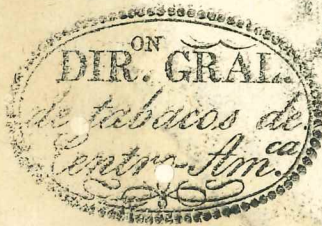 DIR.ON GRAL.
de tabacos de
Centro-Am.ca